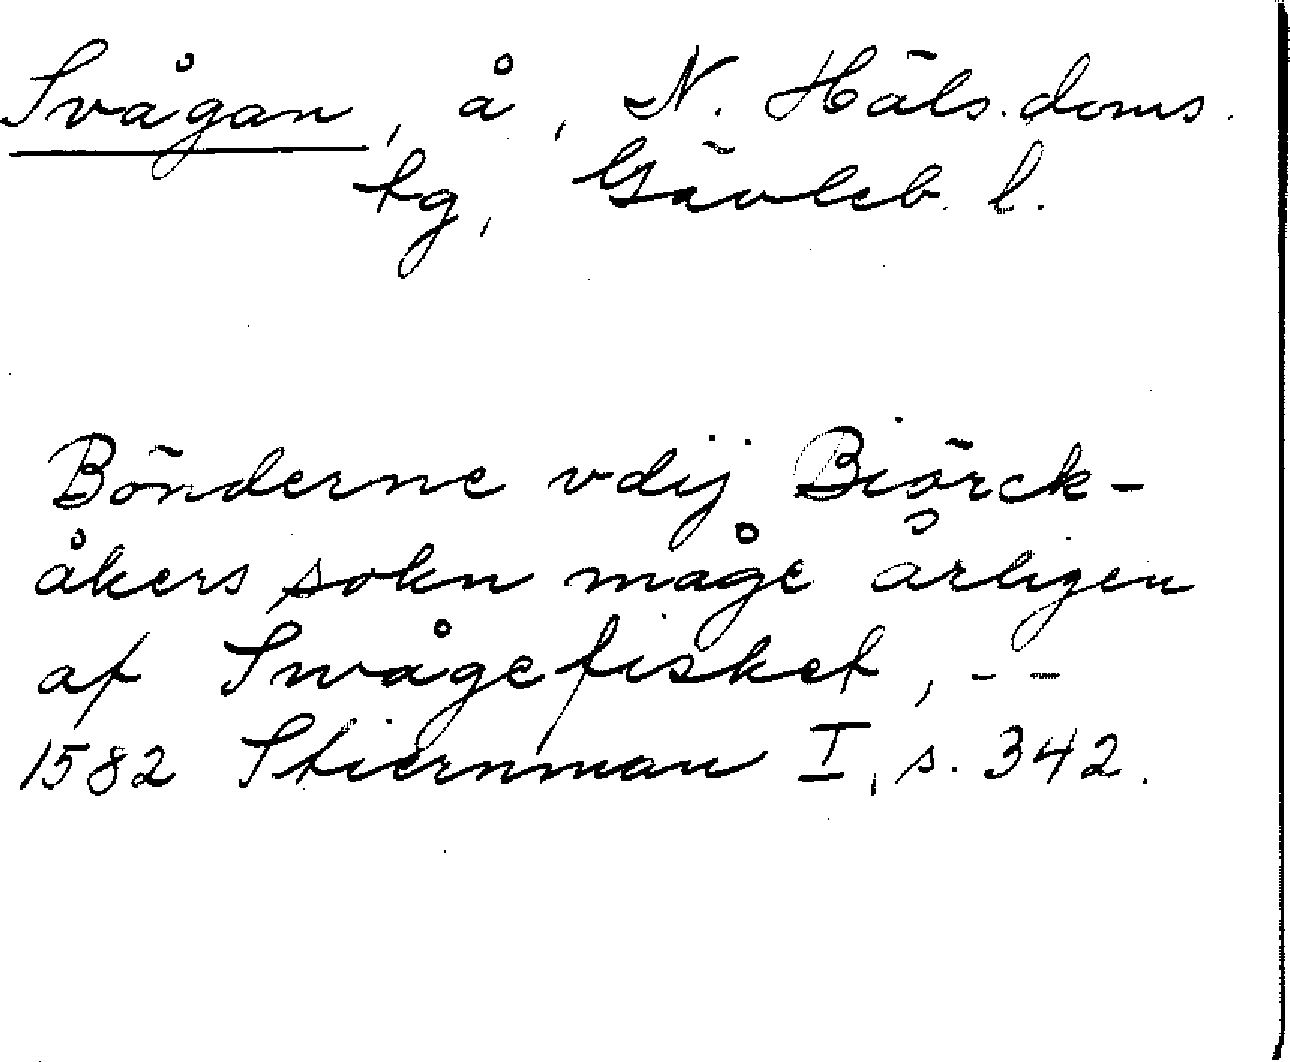 Svågan, å, N. Häls. doms.
tg, Gävleb. l.
Bönderne vdij Biörck-
åkers sokn måge årligen
af Swågefisket, - -
1582 Stiernman I, s. 342.